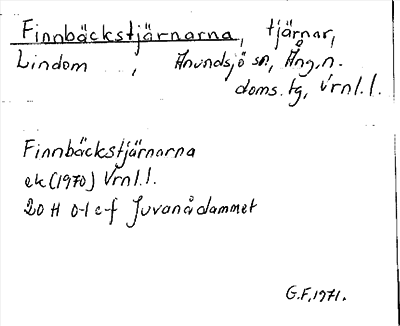 Finnbäckstjärnarna, tjärnar,
Lindom, Anundsjö sn, Ång.n.
doms.tg, Vrnl.l.
Finnbäckstjärnarna
ek (1970) Vrnl.l.
20 H 0-1 e-f Juvanådammet
G.F, 1971.